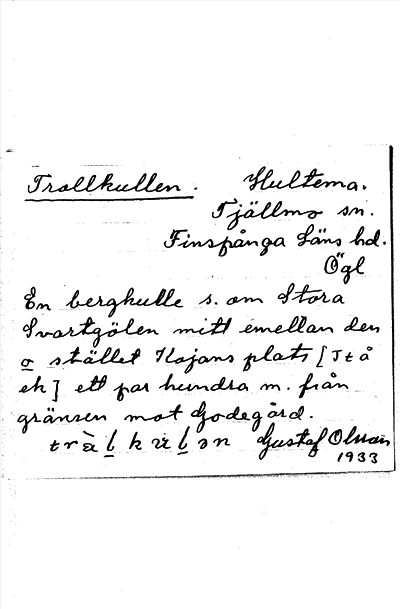 Trollkullen. Hultema.
Tjällmo sn.
Finspånga läns hd.
Ögl
En bergkulle s. om Stora
Svartgölen mitt emellan den
o stället Kojans plats [Jt å
ek] ett par hundra m. från
gränsen mot Godegård.
Gustaf Olsson
1933